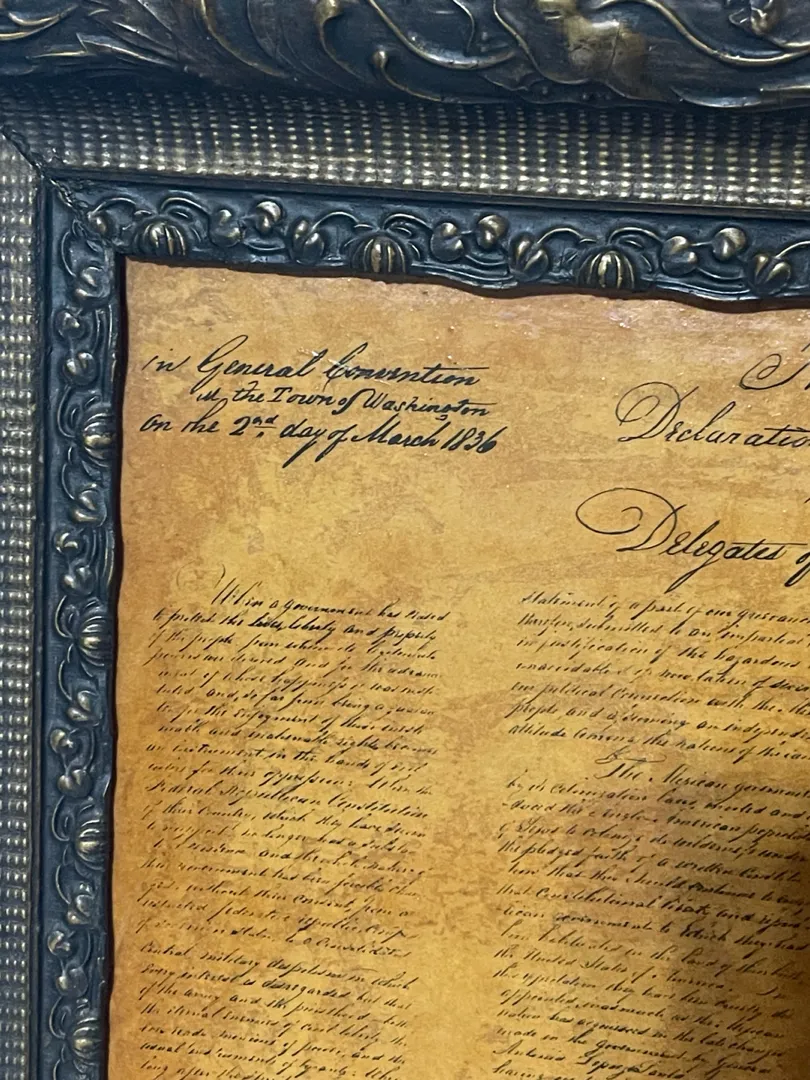 in General Convention
at the Town of Washington
on the 2nd day of March 1836
Declaratio
Delegates of
When a Government has ceased
to protect the lives, liberty and property
of the people from whom its legitimate
powers are derived and for the advance
ment of whose happiness it was insti
tuted and, so far from being a guaran
tee for the enjoyment of those
and inalienable rights becomes
an instrument in the hands of evil
rulers for their oppression: When the
Federal Republican Constitution
of their Country, which they have sworn
to support no longer has a
existence and the whole nature of
their government has been forcibly chan
ged without their consent from a
restricted federative republic
of sovereign states to a Consolidated
Central military despotism in which
every interest is disregarded but that
of the army and the priesthood both
the eternal enemies of civil liberty, the
ready minions of power, and the
usual instruments of tyranny: When
long after the
Statement of a part of our grievan
therefore, submitted to an impartial
in justification of the hazardous
unavoidable step now taken of
our political Connection with the
people and assuming an independ
attitude among the nations of the
The Mexican governme
by its Colonization laws, invited and
duced the Anglo American popula
of Texas to Colonize its wilderness under
the pledged faith of a written
tion that they should continue to
that Constitutional liberty and repub
lican government to which they
been habituated in the land of their
the United States of America. In
this expectation they have been cruelly
nation has acquiesced in the late changes
made in the Government by General
Antonio Lopez
having